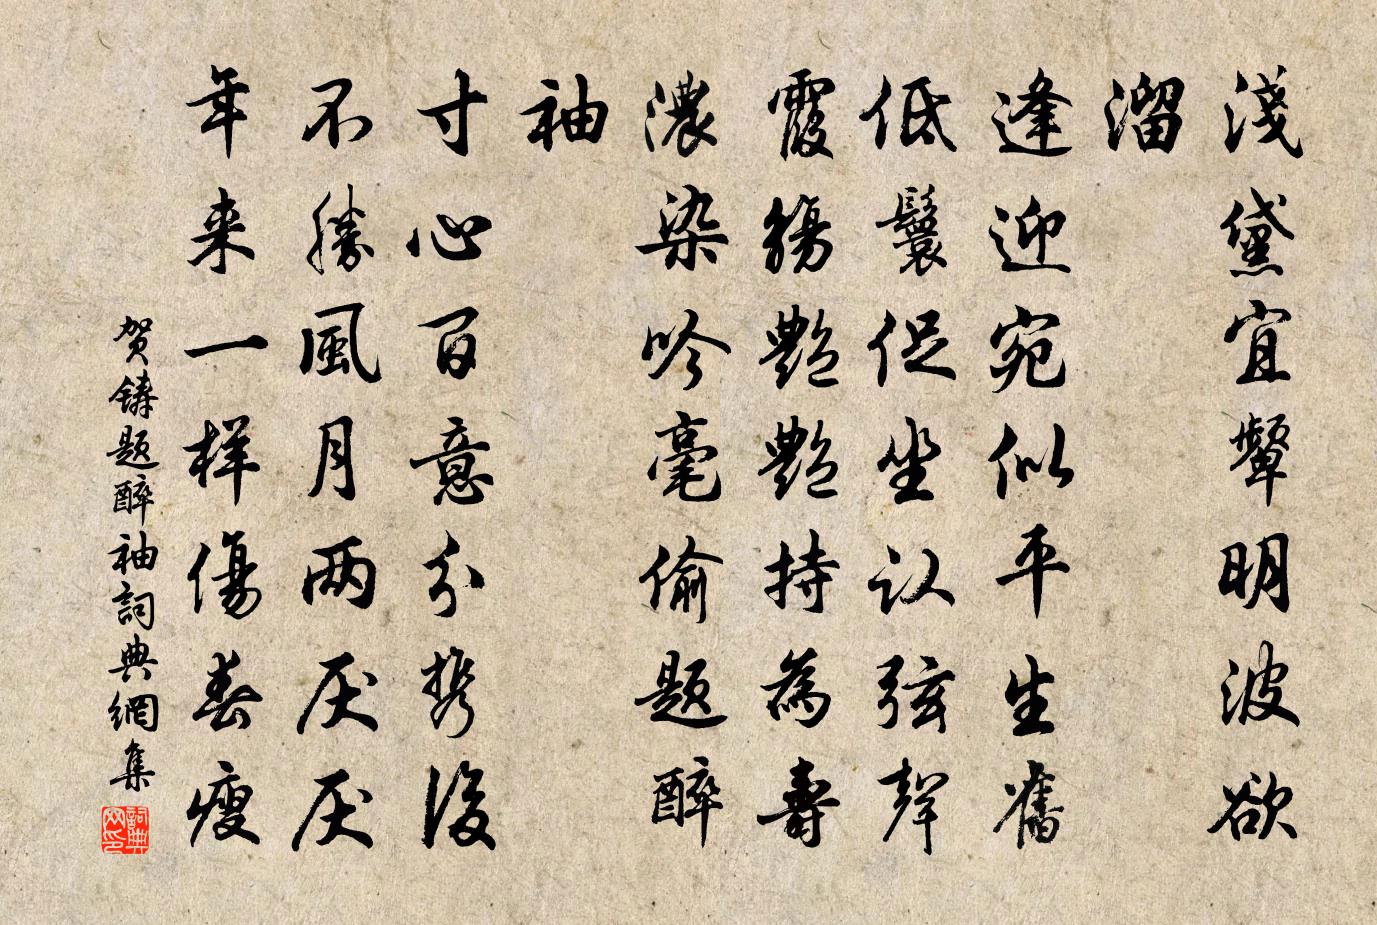 淺黛宜顰明波欲
溜
逢迎宛似平生舊
低鬟促坐认弦聲
霞觴艷艷持為壽
濃染吟毫偷题醉
袖
寸心百意分携後
不勝風月两厌厌
年来一样傷春瘦
贺鑄题醉袖詞典網集
詞典网印